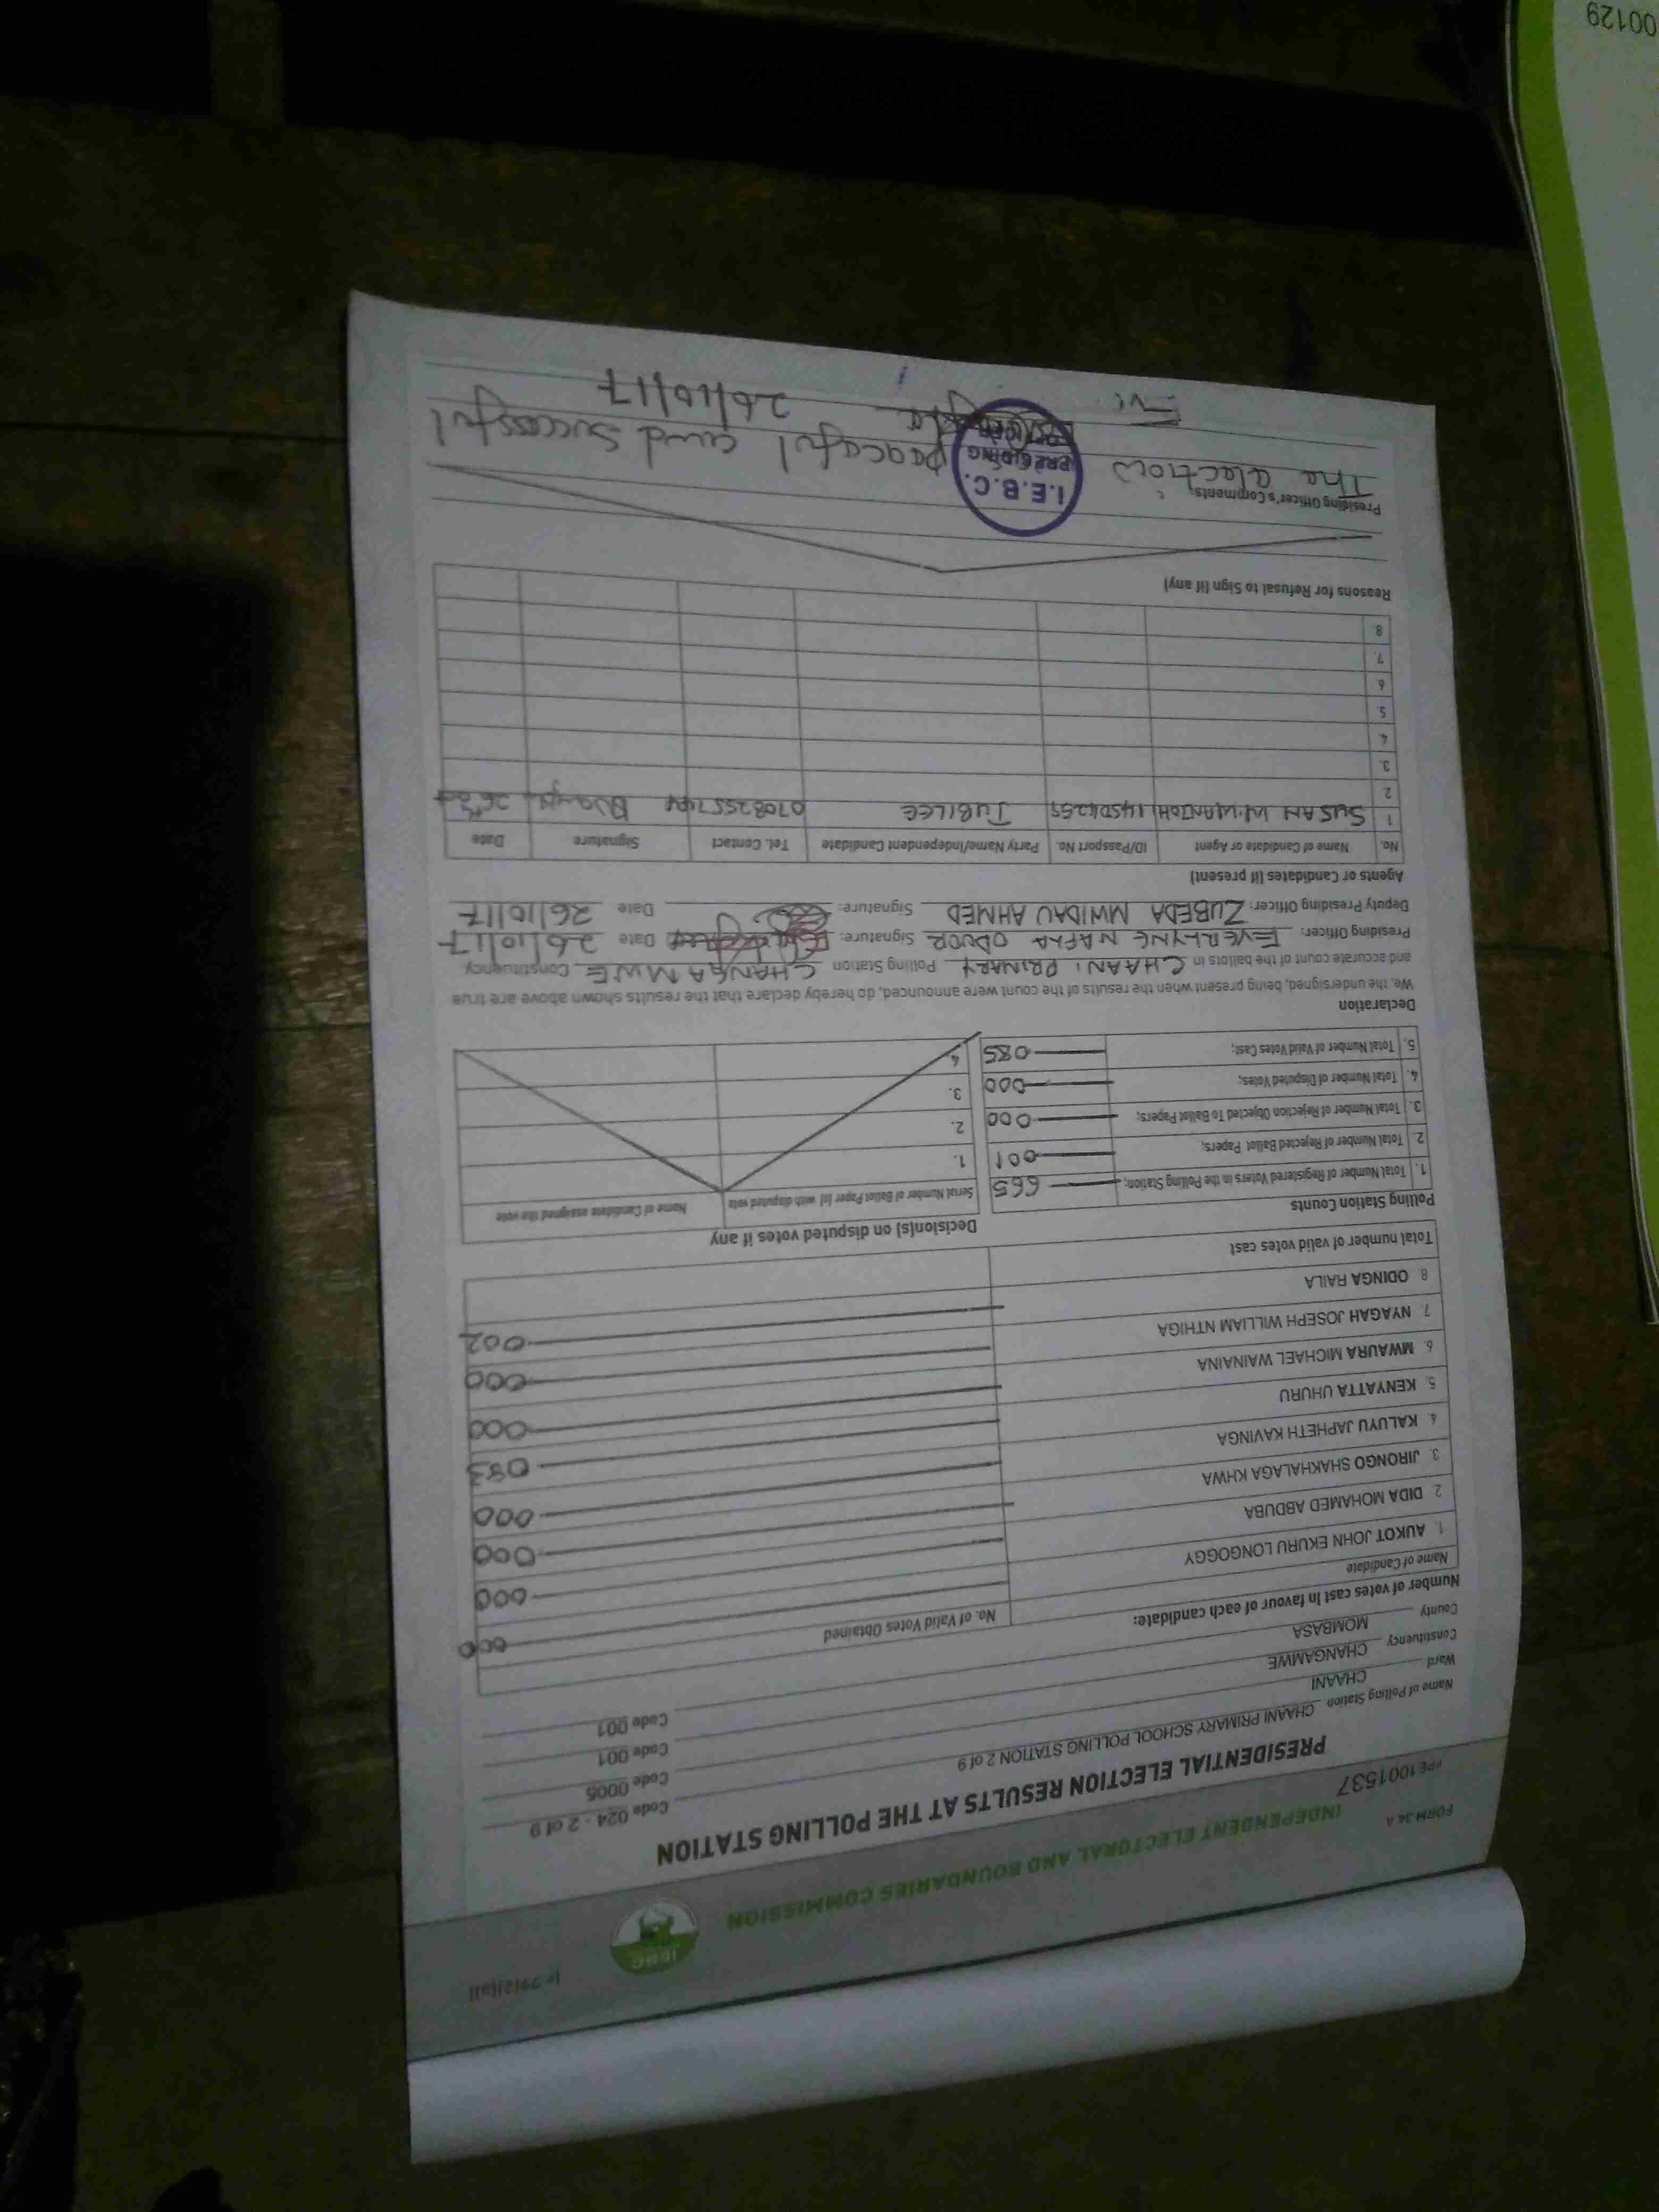 00129
(r 79(2)(a))
IEBC
INDEPENDENT ELECTORAL AND BOUNDARIES COMMISSION
FORM 34 A
PRE1001537
PRESIDENTIAL ELECTION RESULTS AT THE POLLING STATION
Name of Polling Station CHAANI PRIMARY SCHOOL POLLING STATION 2 of 9 Code 024 - 2 of 9
Ward CHAANI Code 0005
Constituency CHANGAMWE Code 001
County MOMBASA Code 001
Number of votes cast in favour of each candidate:
Name of Candidate No. of Valid Votes Obtained
1. AUKOT JOHN EKURU LONGOGGY 000
2. DIDA MOHAMED ABDUBA 000
3. JIRONGO SHAKHALAGA KHWA 000
4. KALUYU JAPHETH KAVINGA 000
5. KENYATTA UHURU 083
6. MWAURA MICHAEL WAINAINA 000
7. NYAGAH JOSEPH WILLIAM NTHIGA 000
8. ODINGA RAILA 002
Total number of valid votes cast
Polling Station Counts
1. Total Number of Registered Voters in the Polling Station; 665
2. Total Number of Rejected Ballot Papers; 001
3. Total Number of Rejection Objected To Ballot Papers; 000
4. Total Number of Disputed Votes; 000
5. Total Number of Valid Votes Cast; 085
Decision(s) on disputed votes if any
Serial Number of Ballot Paper (s) with disputed vote Name of Candidate assigned the vote
1.
2.
3.
4
Declaration
We, the undersigned, being present when the results of the count were announced, do hereby declare that the results shown above are true
and accurate count of the ballots in CHAANI PRIMARY Polling Station CHANGAMWE Constituency
Presiding Officer: EVERLYNE NAFKA ODUOR Signature: Date 26/10/17
Deputy Presiding Officer: ZUBEDA MWIDAU AHMED Signature: Date 26/10/17
Agents or Candidates (if present)
No. Name of Candidate or Agent ID/Passport No. Party Name/Independent Candidate Tel. Contact Signature Date
1 SUSAN W. WANJOHI JUBILEE 26th Oct
2
3.
4.
5.
6
7.
8.
Reasons for Refusal to Sign (if any)
Presiding Officer's Comments;
The election peaceful and successful
I.E.B.C.
PRESIDING
OFFICER
Evi 26/10/17